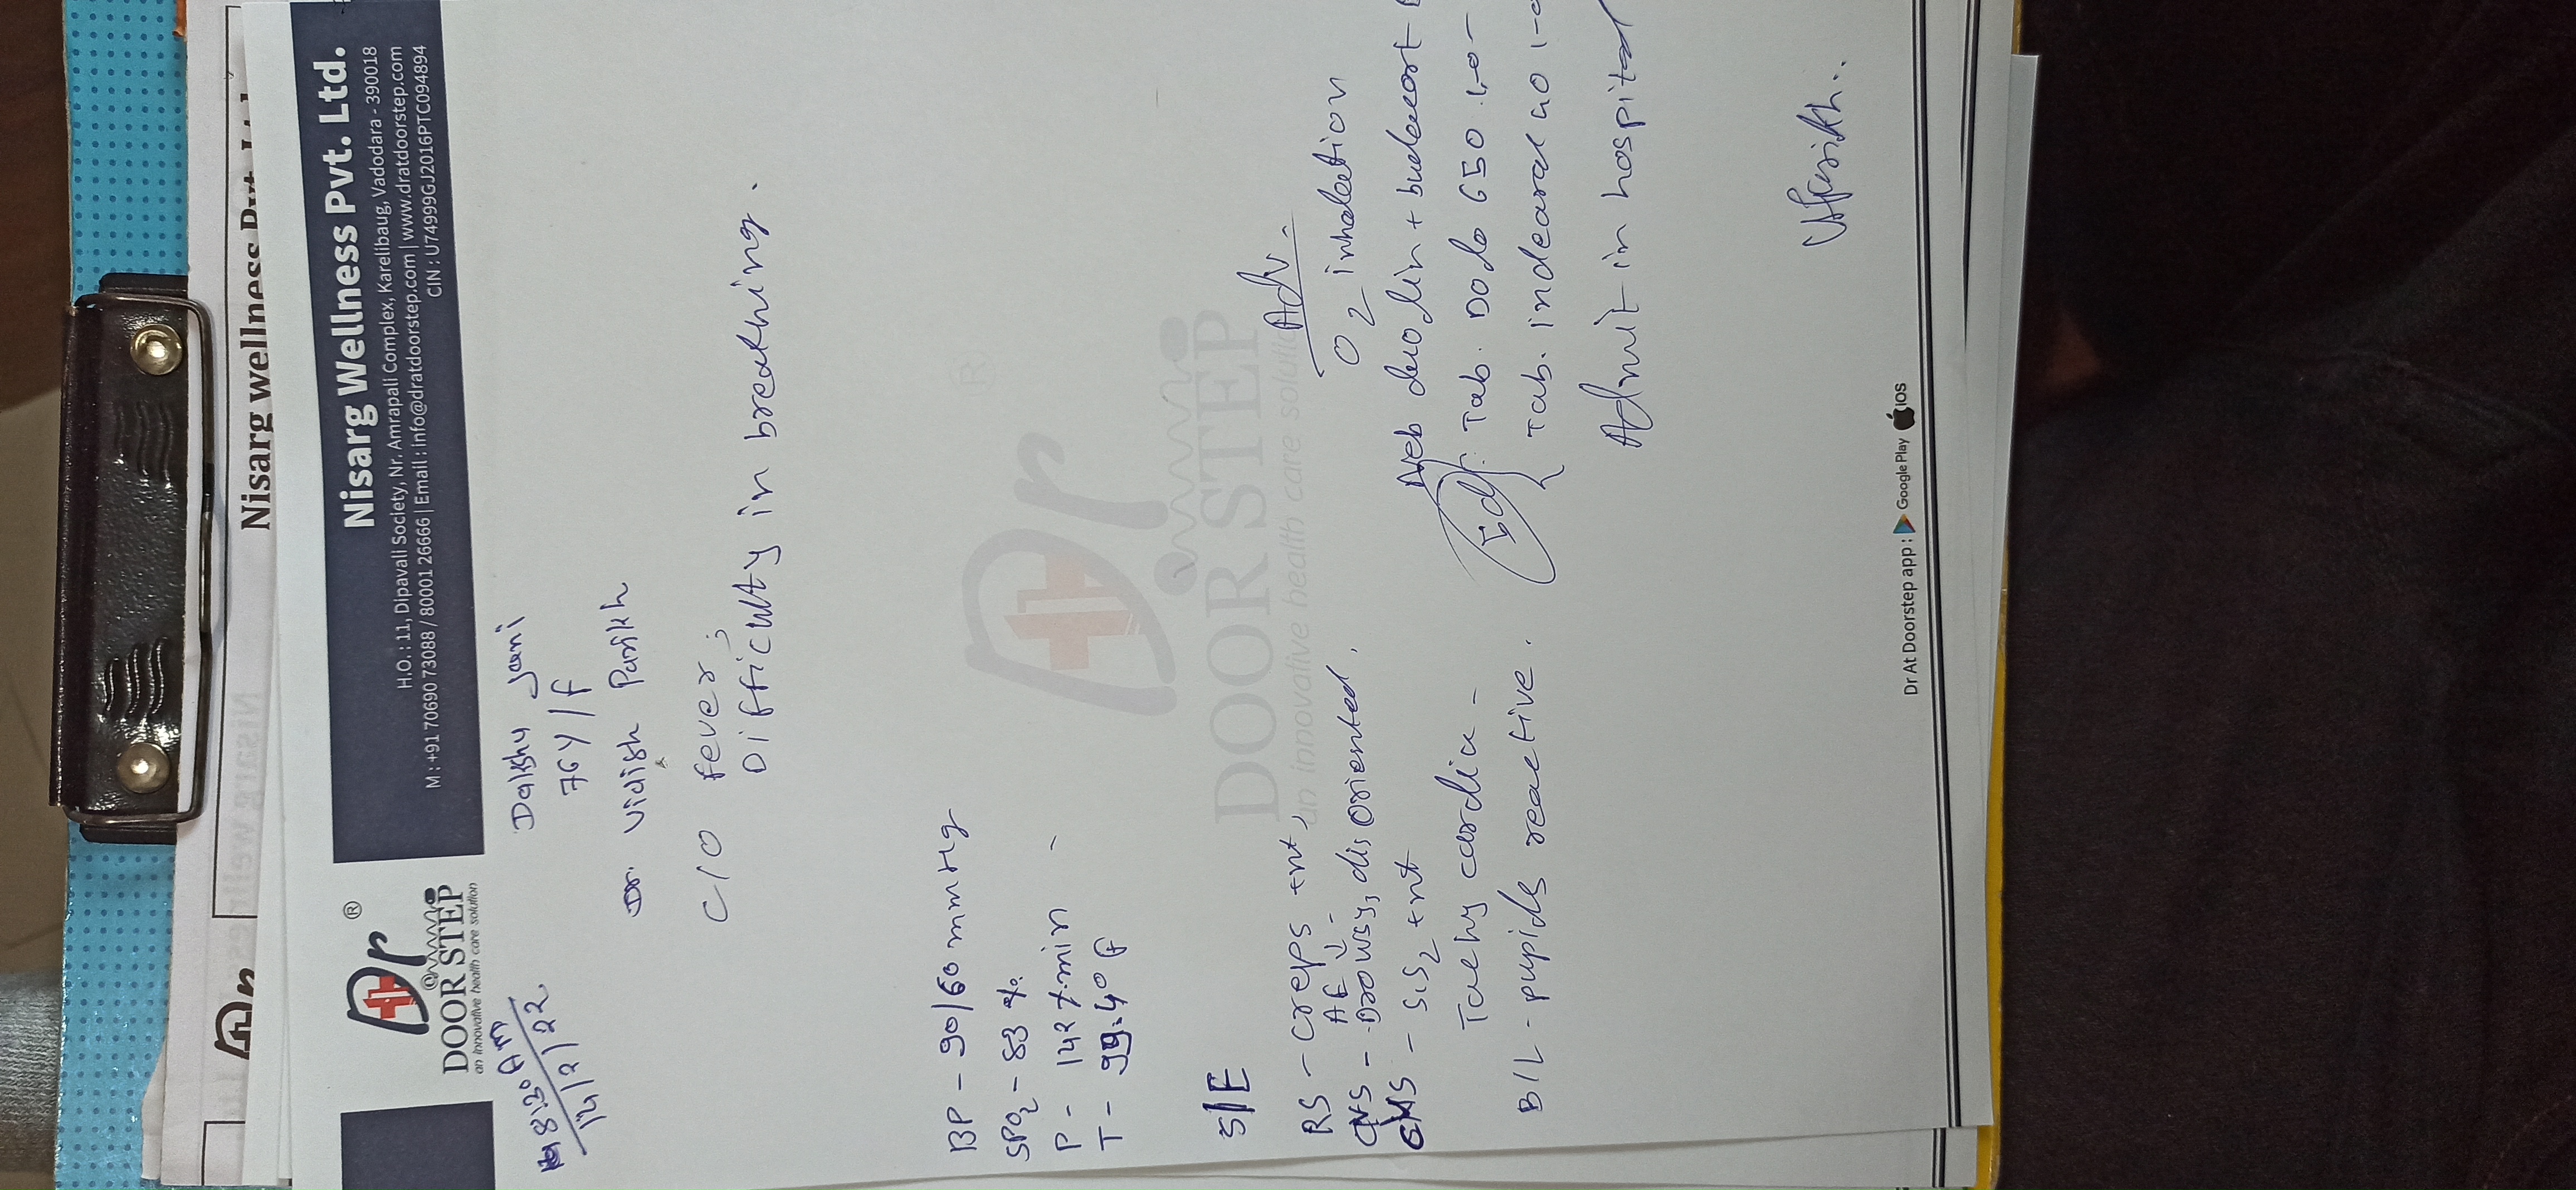 Nisarg wellness Pvt. Ltd.
Dr
Dr ®
DOOR STEP
an innovative health care solution
Nisarg Wellness Pvt. Ltd.
H.O. : 11, Dipavali Society, Nr. Amrapali Complex, Karelibaug, Vadodara - 390018
M : +91 70690 73088 / 80001 26666 | Email : info@dratdoorstep.com | www.dratdoorstep.com
CIN : U74999GJ2016PTC094894
8:30 AM
14/2/22
Dakshu Jani
76Y/F
Dr. Vidish Parikh
C/O fever;
Difficulty in breathing.
BP - 90/60 mmHg
SPO2 - 83 %
P - 142 /min
T - 99.4° F
Dr ®
DOOR STEP
an innovative health care solution
S/E
RS - creps +nt,
AE ↓
CNS - Drowsy, disoriented.
CVS - S1S2 +nt
Tachy cardia -
B/L - pupils reactive.
Adv.
O2 inhalation
Neb duolin + budecort
5d
Tab. Dolo 650 1-0-
Tab. indearal 40 1-0
Admit in hospital
Dr At Doorstep app : Google Play iOS